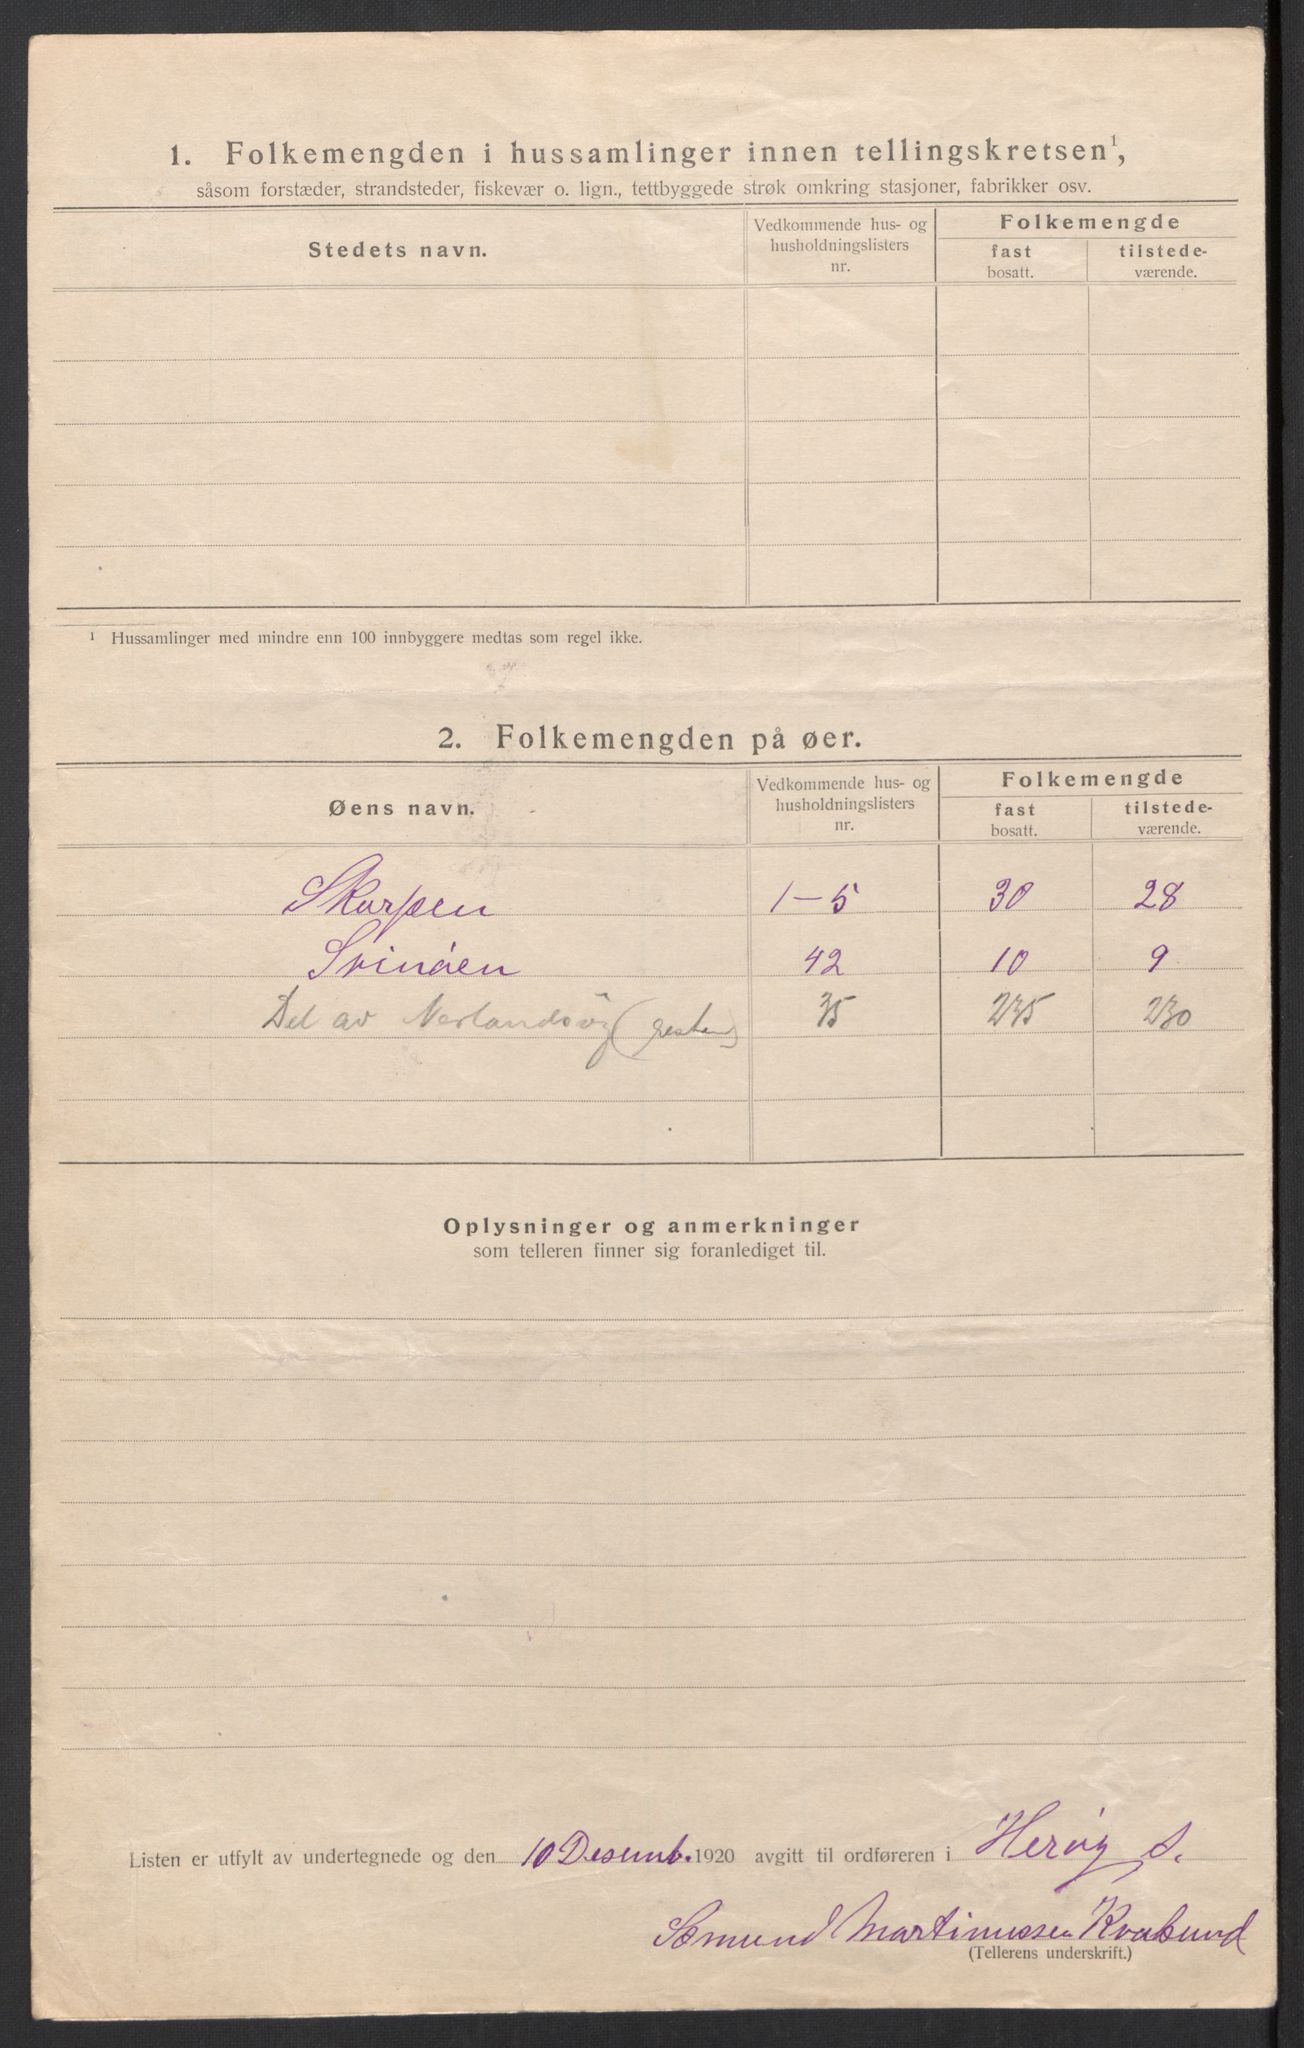 1. Folkemengden i hussamlinger innen tellingskretsen¹,
såsom forstæder, strandsteder, fiskevær o. lign., tettbyggede strøk omkring stasjoner, fabrikker osv.
Stedets navn. Vedkommende hus- og husholdningslisters nr. Folkemengde
fast bosatt. tilstede-værende.
¹ Hussamlinger med mindre enn 100 innbyggere medtas som regel ikke.
2. Folkemengden på øer.
Øens navn. Vedkommende hus- og husholdningslisters nr. Folkemengde
fast bosatt. tilstede-værende.
Skorpen 1–5 30 28
Svinöen 42 10 9
Del av Nerlandsöy (resten) 35 235 230
Oplysninger og anmerkninger
som telleren finner sig foranlediget til.
Listen er utfylt av undertegnede og den 10 Desemb. 1920 avgitt til ordføreren i Heröy s.
Semund Martinussen Kvalsund
(Tellerens underskrift.)